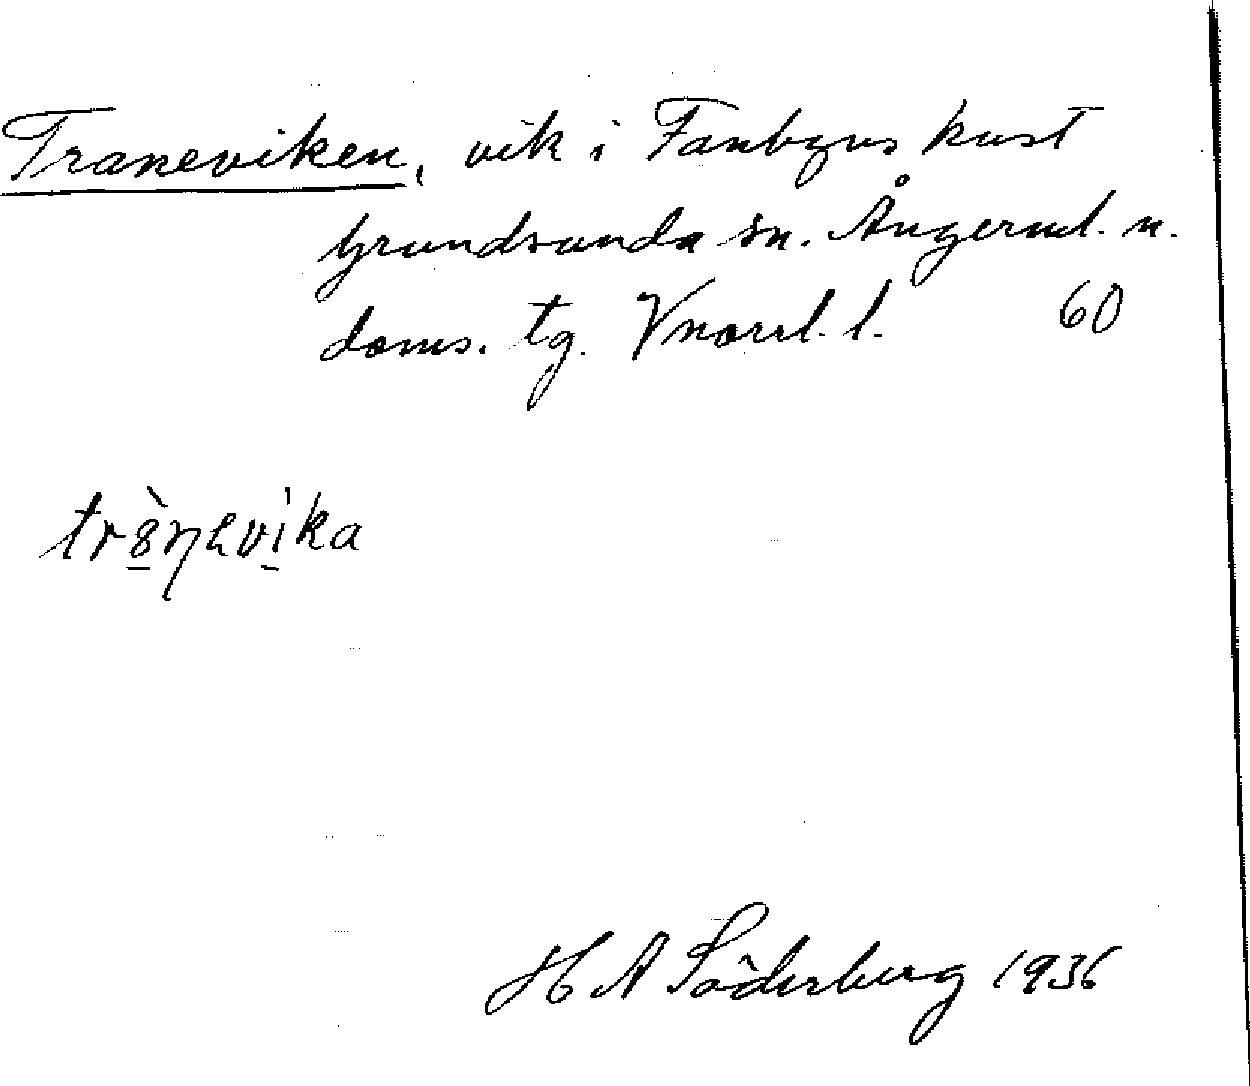 Traneviken, vik i Fanbyns kust
Grundsunda sn. Ångerml. n.
doms. tg. Vnorrl. l. 60
H A Söderberg 1936